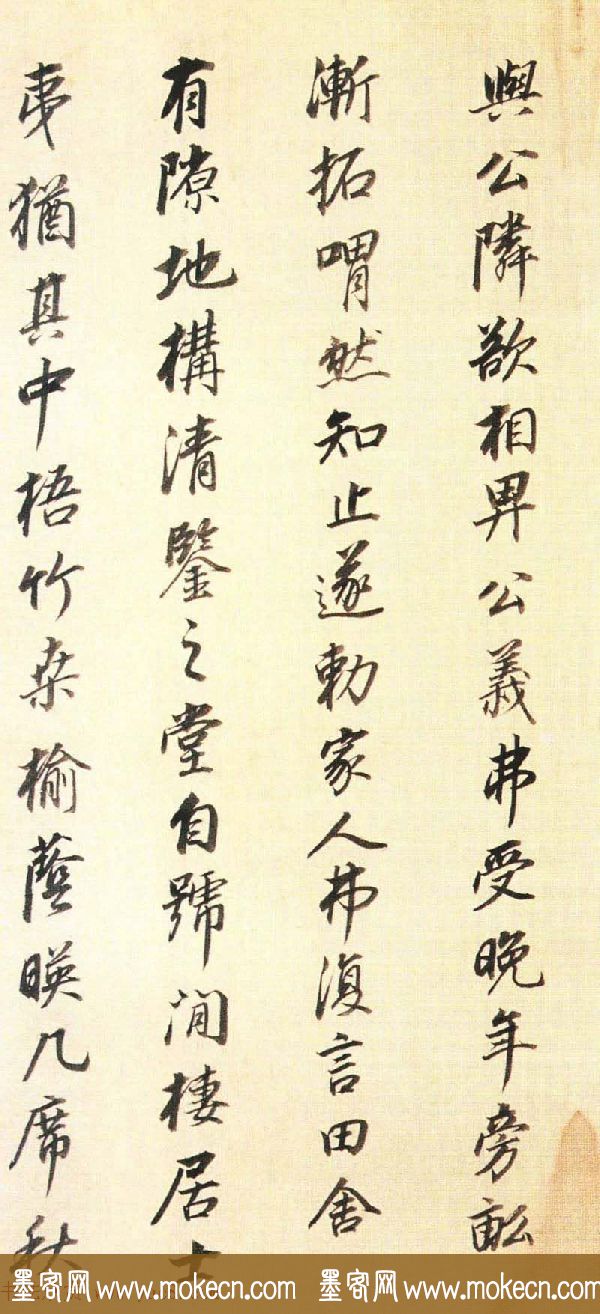 與公隣欲相畀公義弗受晚年旁畆
漸拓喟然知止遂勅家人弗復言田舍
有隙地構清鑒之堂自號閒棲居士
夷猶其中梧竹桑榆蔭暎几席秋
墨客网 www.mokecn.com 墨客网 www.mokecn.com